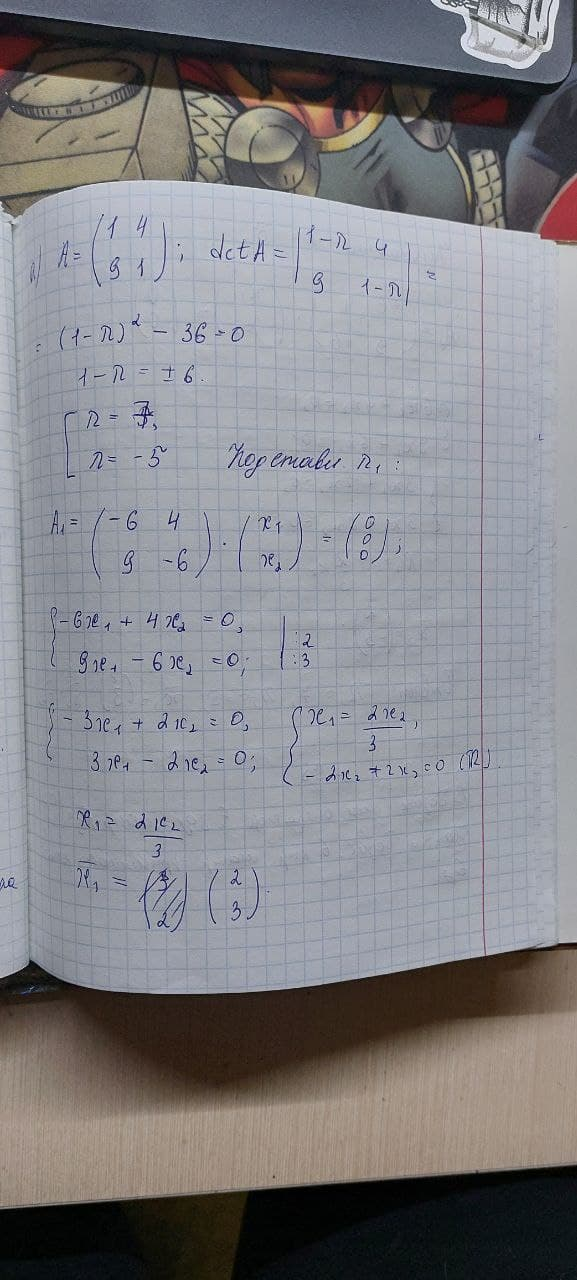 а) A = (1 4 9 1); det A = |1-λ 4 9 1-λ| =
= (1-λ)² - 36 = 0
1-λ = ±6.
[λ = 7,
λ = -5 Подставим λ₁:
A₁ = (-6 4 9 -6) · (x₁ x₂) = (0 0 0);
{-6x₁ + 4x₂ = 0, | :2
9x₁ - 6x₂ = 0; | :3
{-3x₁ + 2x₂ = 0, {x₁ = 2x₂/3,
3x₁ - 2x₂ = 0; -2x₂ + 2x₂ = 0 (R).
x₁ = 2x₂/3
x̄₁ = (2 3).